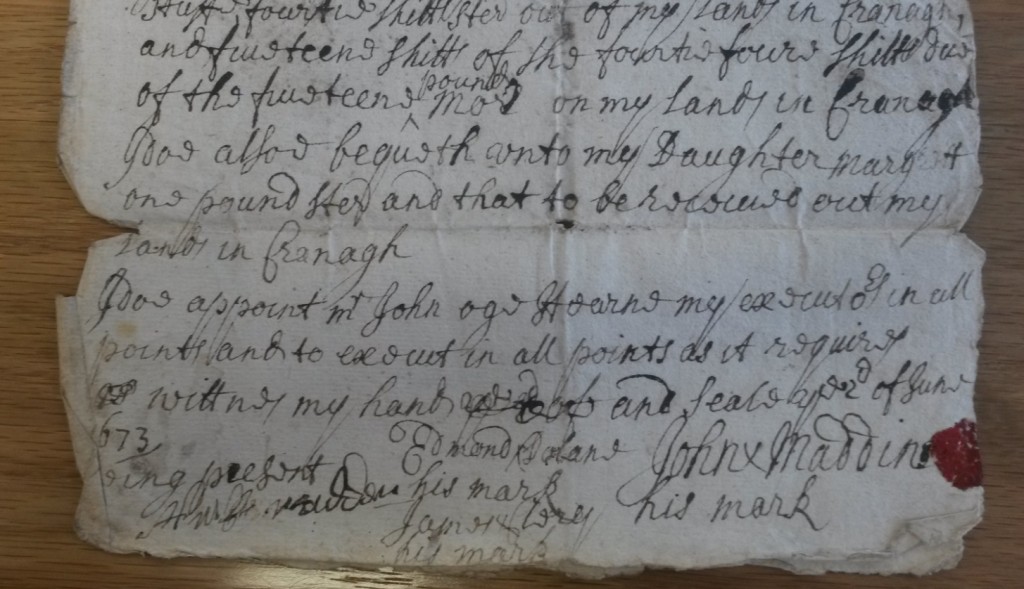 fourtie shitts ster out of my lands in Cranagh,
and fiveteene shitts of the fourtie foure shitts due
of the fiveteene pound on my lands in Cranagh
I doe alsoe begueth unto my Daughter margret
one pound ster and that to be receiued out my
lands in Cranagh
I doe appoint mr John oge Hearne my executor in all
points and to execut in all points as it requires
as wittnes my hand and seale ye 2d of June
673
Edmond x Dolane John x Maddin
eing present
his mark his mark
James
his mark